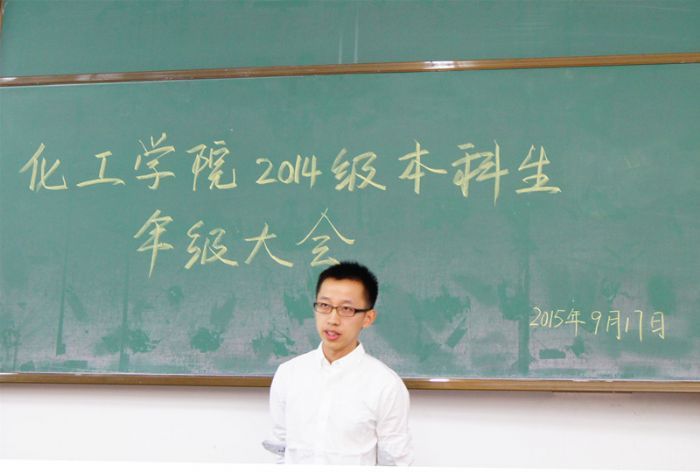 化工学院2014级本科生
年级大会
2015年9月17日